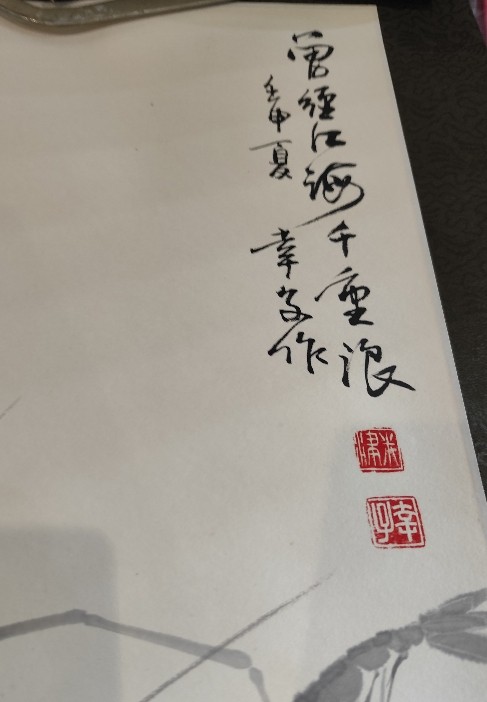 曾經江海千重浪
壬申夏
幸子作
幸子